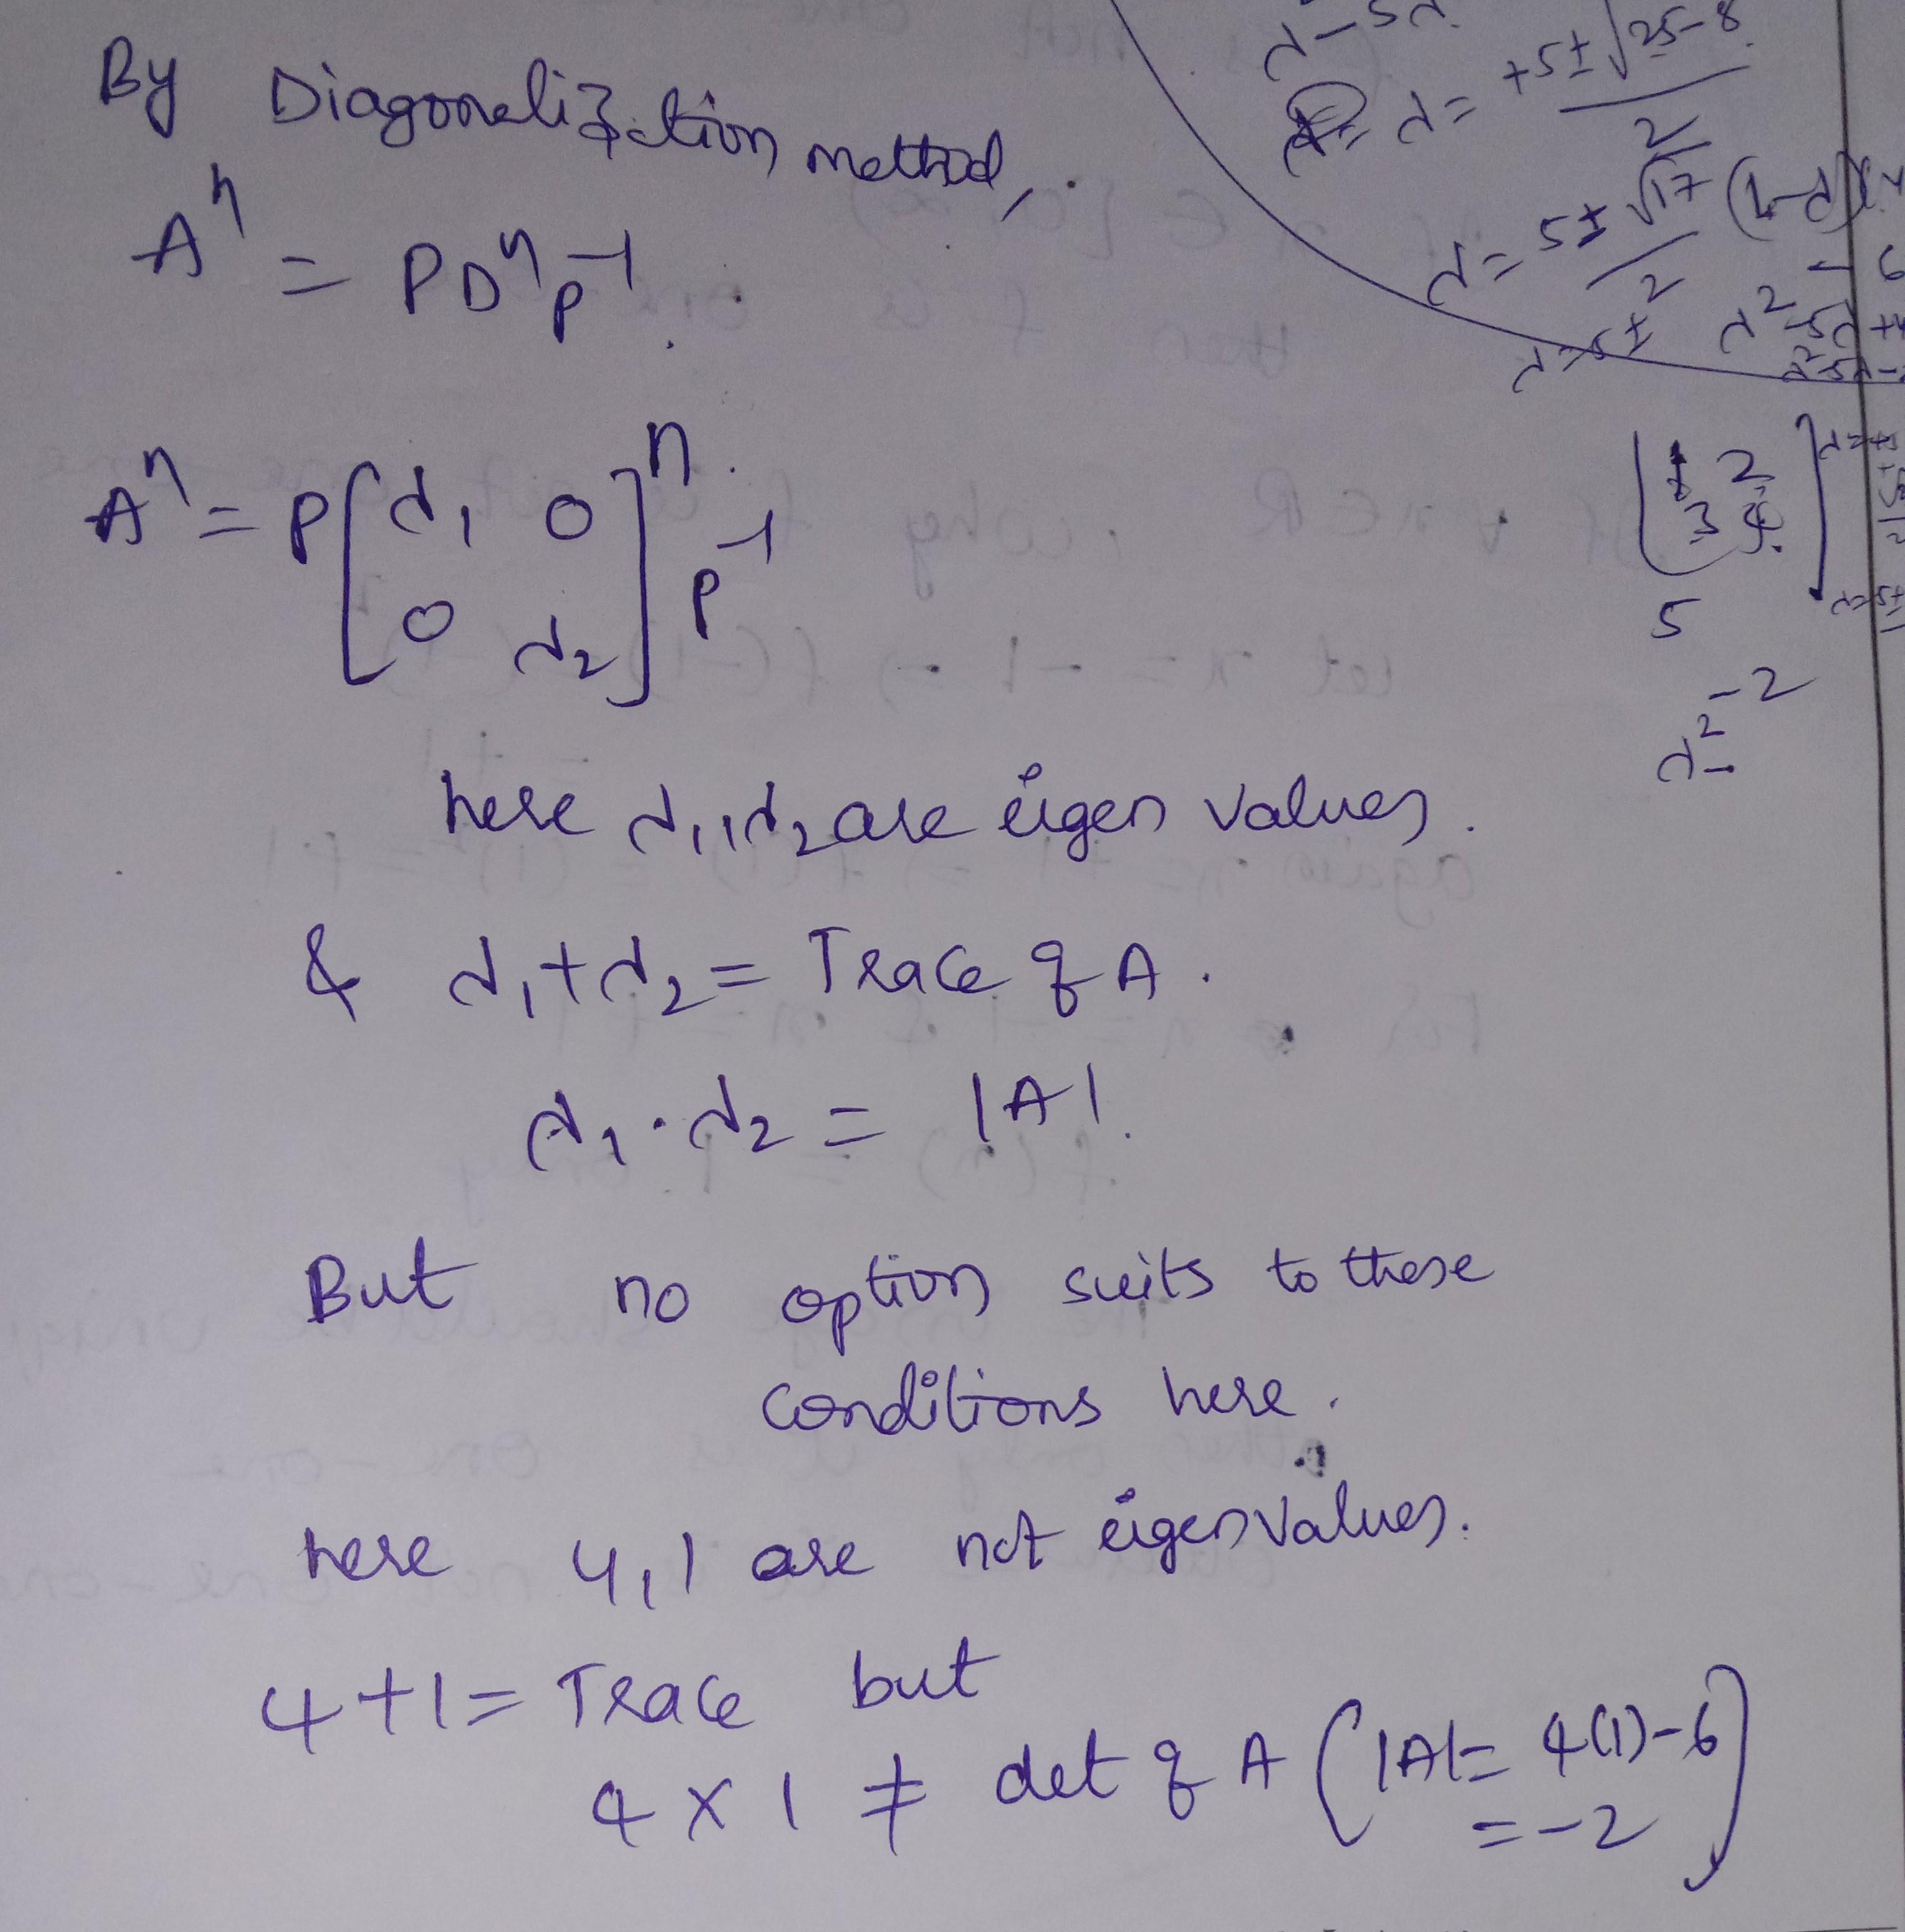 By Diagonalization method,
Aⁿ = PDⁿP⁻¹.
Aⁿ = P[λ₁ 0
0 λ₂]ⁿ P⁻¹
here λ₁, λ₂ are eigen values.
& λ₁+λ₂ = Trace of A.
λ₁·λ₂ = |A|.
But no option suits to these
conditions here.
here 4,1 are not eigenvalues.
4+1 = Trace but
4 x 1 ≠ det of A (|A| = 4(1)-6
= -2)
λ = +5±√25-8
2
λ = 5±√17
2
λ = 5±
[1 2
3 4]
5
-2
λ²-